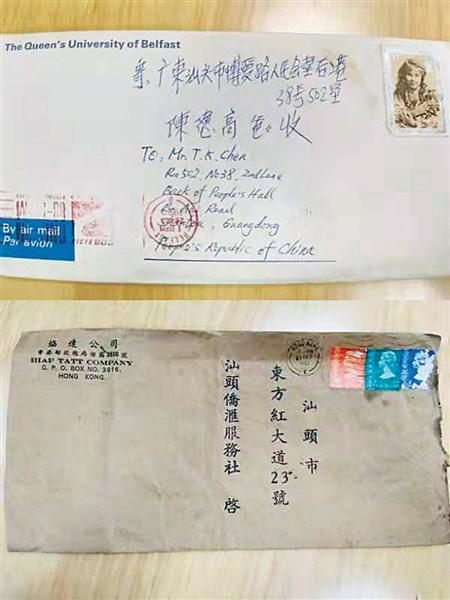 The Queen's University of Belfast
寄: 广东汕头市博爱路人民会堂后巷
38号502室
陳德高爸收
To: Mr. T.K. Chen
Rm 502, No 38, 2nd Lane
Back of People's Hall
Road
, Guangdong
People's Republic of China
By air mail
Par avion
協達公司
香港郵政總局信箱3816號
HIAP TATT COMPANY
G. P. O. BOX NO. 3816,
HONG KONG.
汕頭市
東方紅大道23號
汕頭僑滙服務社 啓